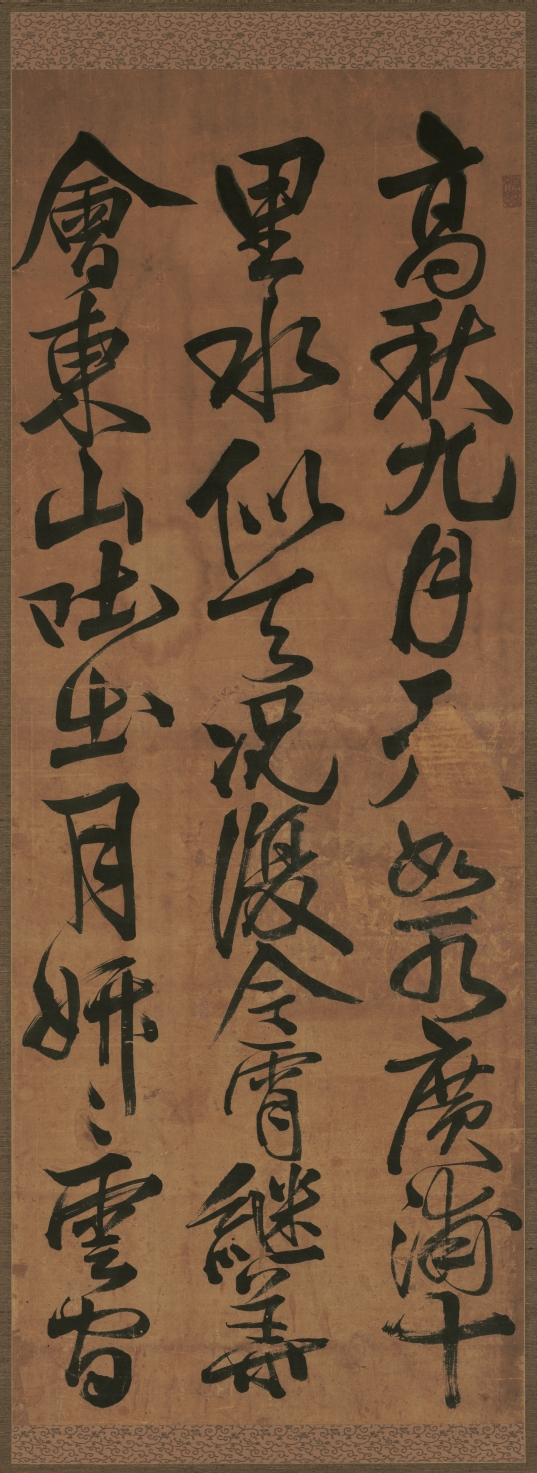 高秋九月天如水廣浦十
里水似天況復今宵繼華
會東山吐出月妍〻雲宕